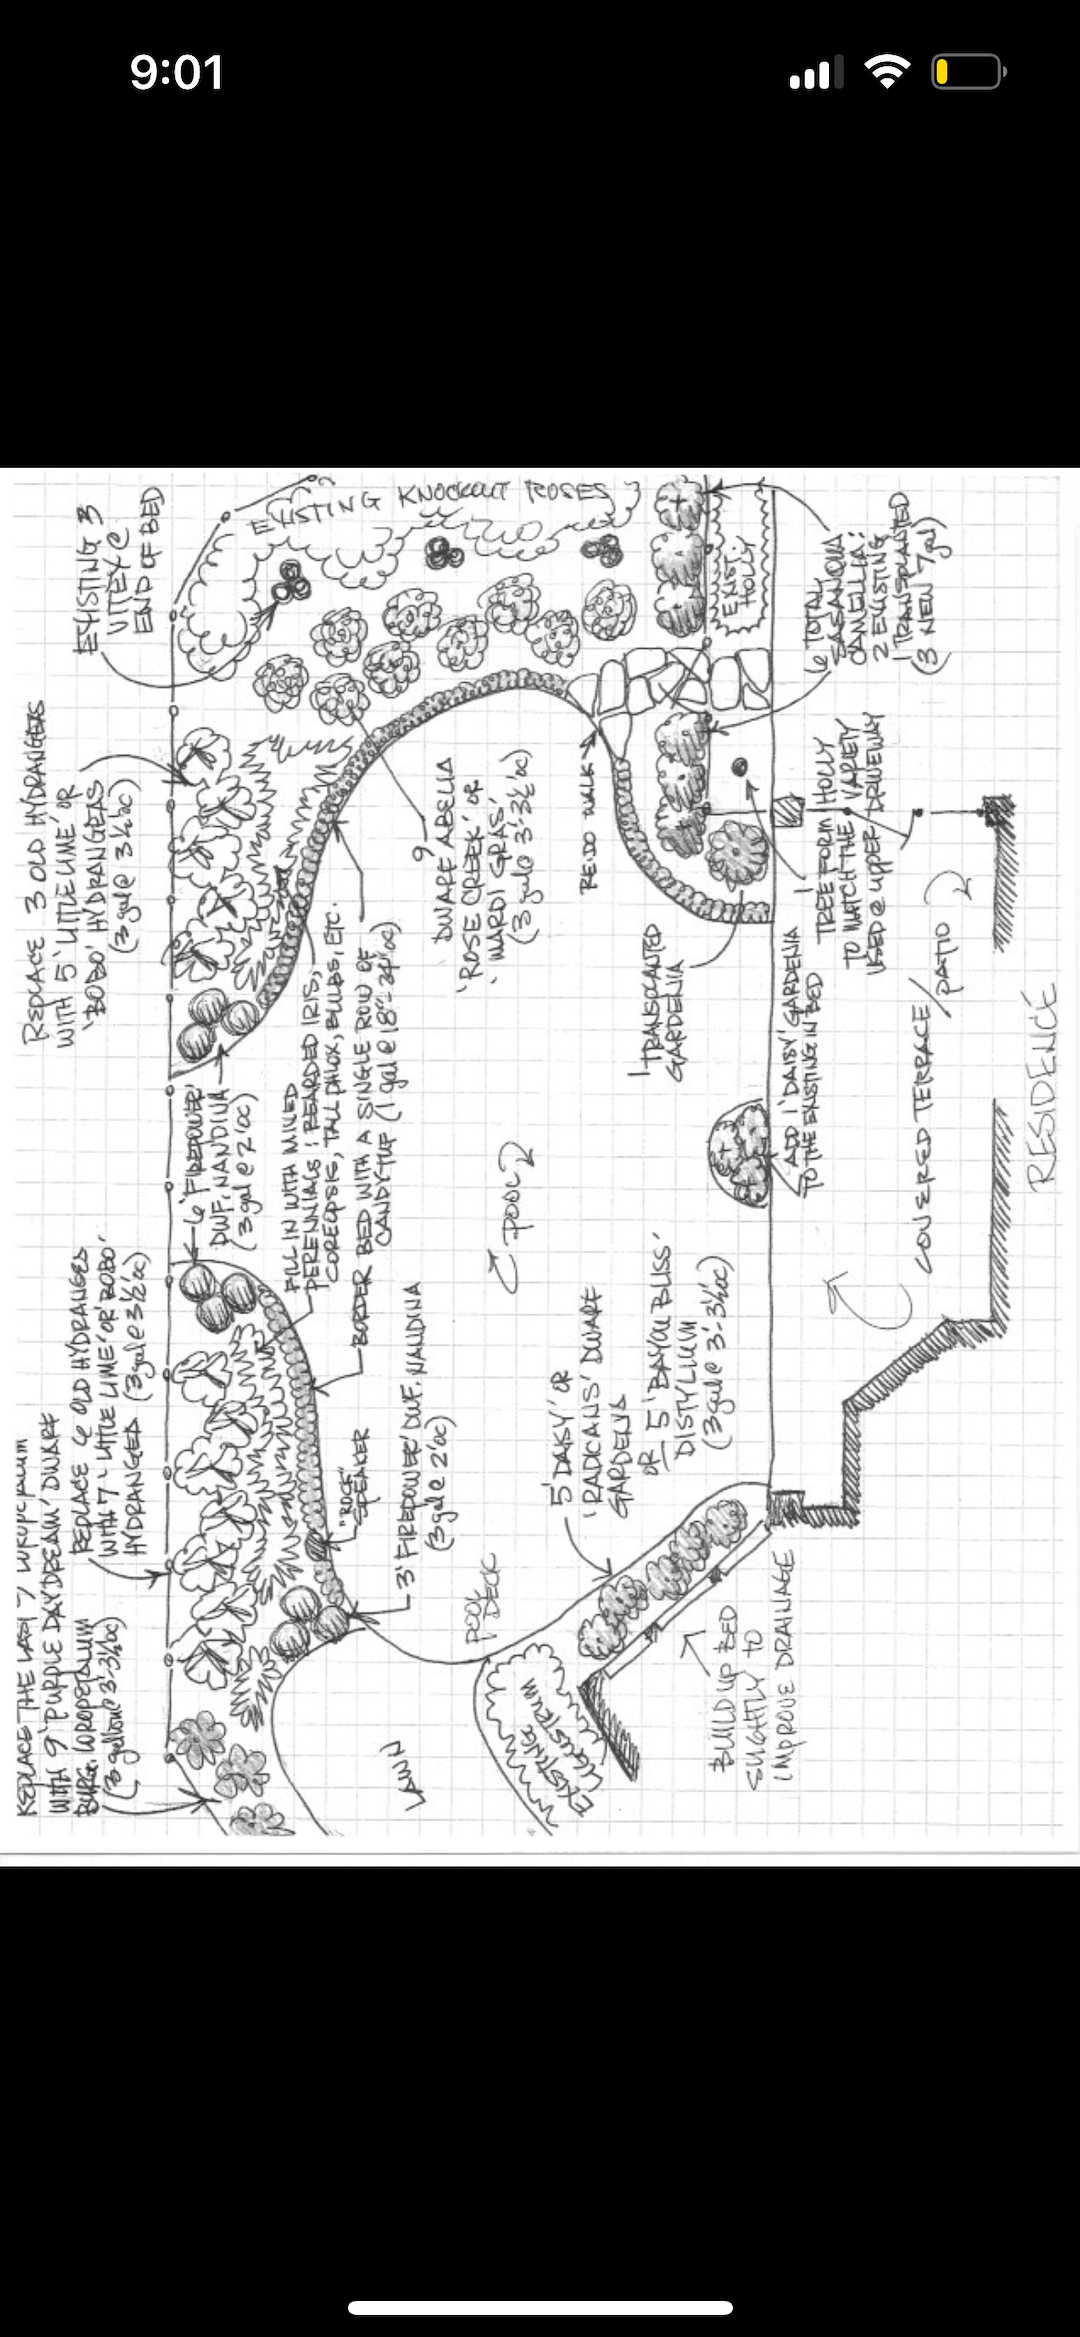 9:01
REPLACE THE LAST 7 LOROPETALUM
WITH 9 'PURPLE DAYDREAM' DWARF
BURG. LOROPETALUM
(3 gallon @ 3'-3½' oc)
REPLACE 6 OLD HYDRANGEAS
WITH 7 - 'LITTLE LIME' OR 'BOBO'
HYDRANGEA (3 gal @ 3½' oc)
REPLACE 3 OLD HYDRANGEAS
WITH 5 'LITTLE LIME' OR
'BOBO' HYDRANGEAS
(3 gal @ 3½' oc)
EXISTING 3
VITEX @
END OF BED
EXISTING KNOCKOUT ROSES
6 'FIREPOWER'
DWF. NANDINA
(3 gal @ 2' oc)
FILL IN WITH MIXED
PERENNIALS: BEARDED IRIS,
COREOPSIS, TALL PHLOX, BULBS, ETC.
BORDER BED WITH A SINGLE ROW OF
CANDYTUFT (1 gal @ 18"-24" oc)
"ROCK"
SPEAKER
3 'FIREPOWER' DWF. NANDINA
(3 gal @ 2' oc)
9
DWARF ABELIA
'ROSE CREEK' OR
'MARDI GRAS'
(3 gal @ 3'-3½' oc)
REDO WALK
EXIST.
HOLLY
LAWN
POOL
DECK
POOL
EXISTING
LIGUSTRUM
5 'DAISY' OR
'RADICANS' DWARF
GARDENIA
OR 5 'BAYOU BLISS'
DISTYLIUM
(3 gal @ 3'-3½' oc)
1 TRANSPLANTED
GARDENIA
BUILD UP BED
SLIGHTLY TO
IMPROVE DRAINAGE
ADD 1 'DAISY' GARDENIA
TO THE EXISTING IN BED
1
TREE FORM HOLLY
TO MATCH THE VARIETY
USED @ UPPER DRIVEWAY
6 TOTAL
SASANQUA
CAMELLIA:
2 EXISTING
1 TRANSPLANTED
(3 NEW 7 gal)
COVERED TERRACE/
PATIO
RESIDENCE